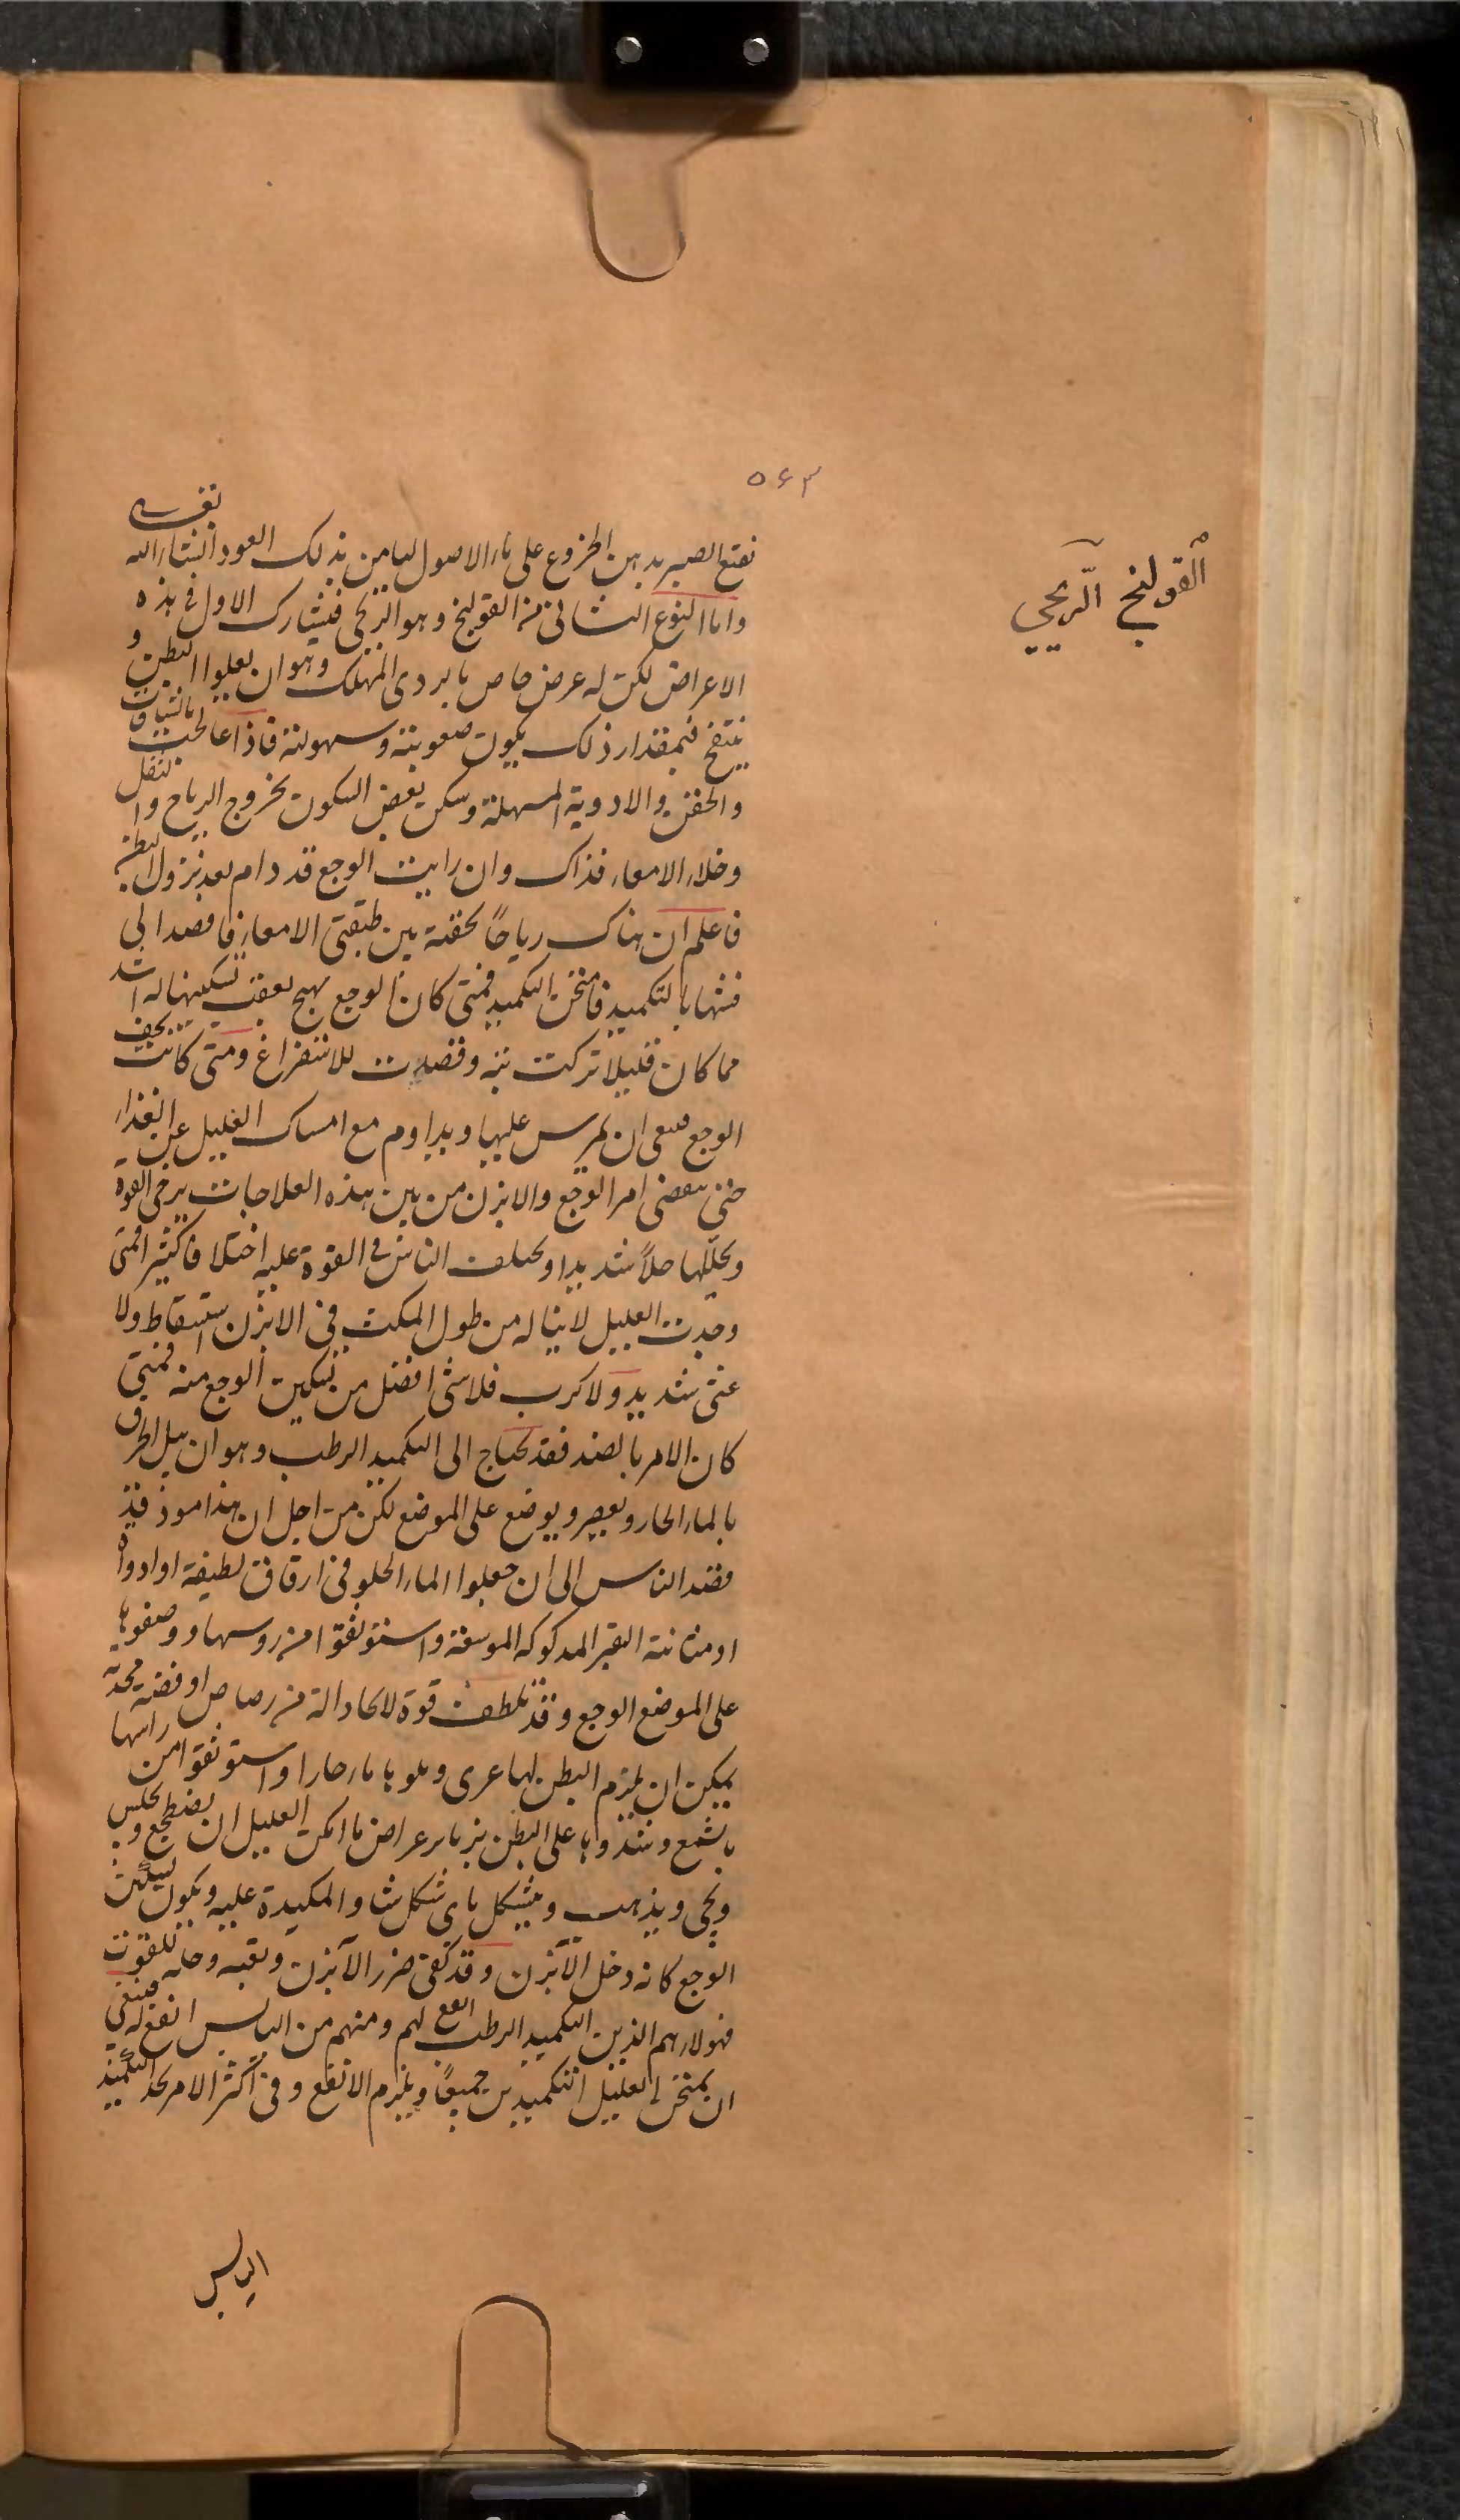 ٥٤٣
القولنج الريحي
نقيع الصبر بدهن الخروع على ماء الاصول ليامن بذلك العود انشاء الله تعـ
واما النوع الثانى من القولنج وهو الريحى فيشارك الاول فى هذه
الاعراض لكن له عرض خاص ما يردى المهلك وهو ان يعلوا البطن و
ينتفخ فبمقدار ذلك يكون صعوبته وسهولته فاذا عالجت بالشيافات
والحقن والادوية المسهلة وسكن بعض السكون بخروج الرياح والثفل
وخلاء الامعاء فذاك وان رايت الوجع قد دام بعد نزول البطن
فاعلم ان هناك رياحاً محقنة بين طبقتى الامعاء فاقصد الى
فشها بالتكميد فامتحن التكميد فمتى كان الوجع يهيج بعقب تسكينها له اشد
مما كان قليلا تركت شه وقصدت للاستفراغ ومتى كانت يخف
الوجع فينبغى ان يحرس عليها ويداوم مع امساك العليل عن الغذاء
حتى ينقضى امر الوجع والابزن من بين هذه العلاجات يرخى القوة
ويحللها حلاً شديدا ويختلف الناس فى القوة عليه اختلافا كثيرا فمتى
وجدت العليل لا يناله من طول المكث فى الابزن استسقاط ولا
غشى شديد ولا كرب فلا شى افضل من تسكين الوجع منه فمتى
كان الامر بالضد فقد يحتاج الى التكميد الرطب وهو ان يبل الخرق
بالماء الحار ويعصر ويوضع على الموضع لكن من اجل ان هذا موذ قذر
فقد الناس الى ان جعلوا الماء الحلو فى ازقاق لطيفة او ادواة
او مثانة البقر المدكوكه الموسعة واستوثقوا من روسها ووضعوها
على الموضع الوجع وقد تلطف قوة لاتخاذ الة من رصاص او فضة محدبة
يمكن ان يلزم البطن لها عرى وملوها ماء حارا واستوثقوا من راسها
بالشمع وشدوها على البطن بزنابير عراض ما امكن العليل ان يضطجع ويجلس
ويجى ويذهب ويتشكل باى شكل شاء والمكيدة عليه ويكون تسكين
الوجع كانه دخل الآبزن وقد كفى ضرر الآبزن وتعبه وحله للقوت
فهولاء هم الذين التكميد الرطب انفع لهم ومنهم من اليابس انفع له فينبغى
ان يمتحن العليل التكميدين جميعاً ويلزم الانفع وفى اكثر الامر يجد التكميد
اليابس